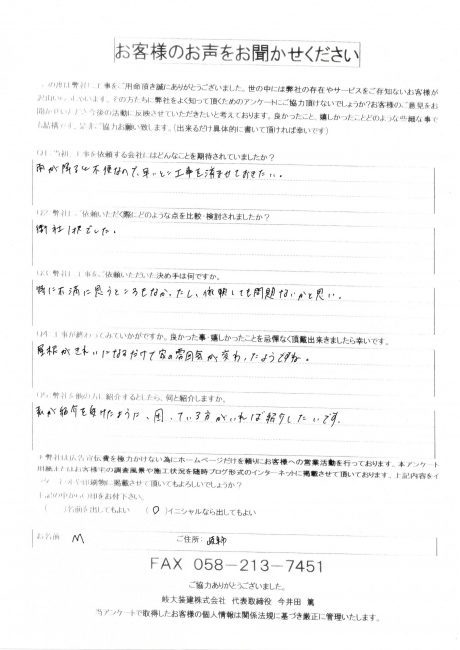 お客様のお声をお聞かせください
の度は弊社に工事をご用命頂き誠にありがとうございました。世の中には弊社の存在やサービスをご存知ないお客様が
沢山いらっしゃいます。その方たちに弊社をよく知って頂くためのアンケートにご協力頂けないでしょうか?お客様のご意見をお
聞かせいただき今後の活動に反映させていただきたいと考えております。良かったこと、嬉しかったことどのような些細な事で
も結構です。是非ご協力お願い致します。(出来るだけ具体的に書いて頂ければ幸いです)
Q1.当初、工事を依頼する会社にはどんなことを期待されていましたか?
雨が降ると不便なので、早いとこ工事を済ませておきたい。
Q2.弊社にご依頼いただく際にどのような点を比較・検討されましたか?
御社1択でした。
Q3.弊社に工事をご依頼いただいた決め手は何ですか。
特に不満に思うところもなかったし、依頼しても問題ないかと思い。
Q4.工事が終わってみていかがですか。良かった事・嬉しかったことを忌憚なく頂戴出来きましたら幸いです。
屋根がきれいになるだけで家の雰囲気が変わったようですね。
Q5.弊社を他の方に紹介するとしたら、何と紹介しますか。
私が紹介を受けたように、困っている方がいれば紹介したいです。
弊社は広告宣伝費を極力かけない為にホームページだけを頼りにお客様への営業活動を行っております。本アンケート
用紙またはお客様宅の調査風景や施工状況を随時ブログ形式のインターネットに掲載させて頂いております。上記内容をイ
印刷物に掲載させて頂いてもよろしいでしょうか?
下記の中から○印をお付下さい。
( )名前を出してもよい (○)イニシャルなら出してもよい
お名前 M ご住所:岐阜市
FAX 058-213-7451
ご協力ありがとうございました。
岐大装建株式会社 代表取締役 今井田 篤
当アンケートで取得したお客様の個人情報は関係法規に基づき厳正に管理いたします。